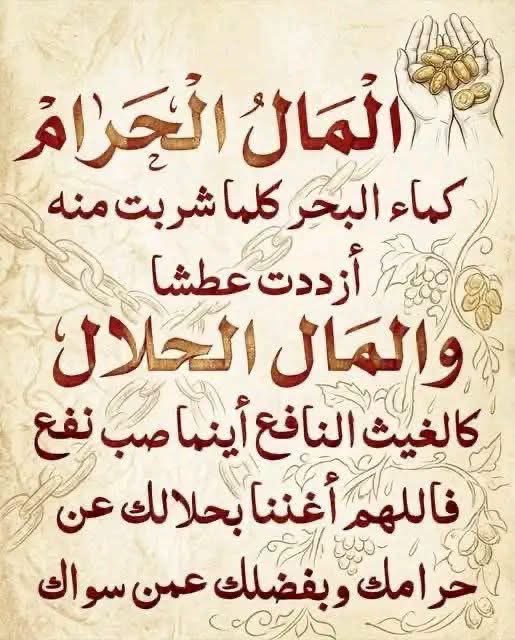 الْمَالُ الْحَرَامْ
كماء البحر كلما شربت منه
أزددت عطشا
والمَال الحلال
كالغيث النافع أينما صب نفع
فاللهم أغننا بحلالك عن
حرامك وبفضلك عمن سواك